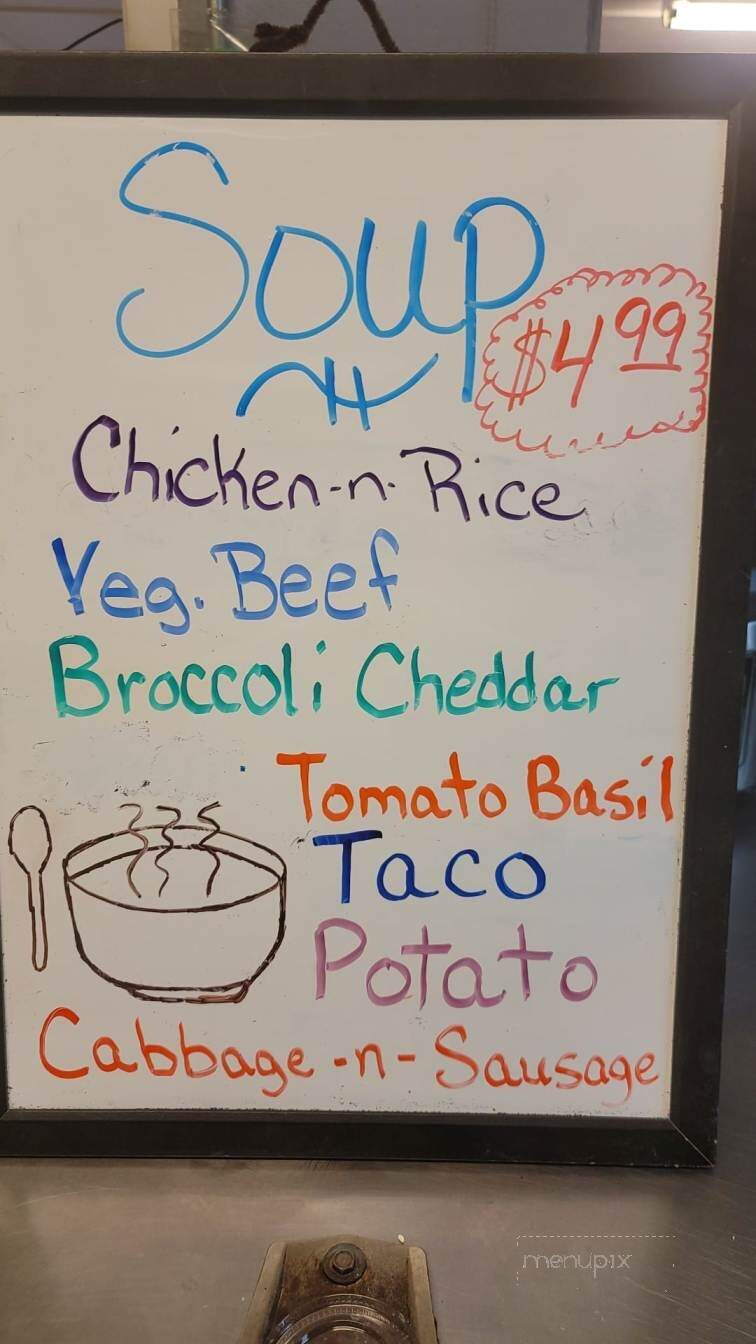 Soup
$4.99
Chicken-n-Rice
Veg. Beef
Broccoli Cheddar
Tomato Basil
Taco
Potato
Cabbage-n-Sausage
menupix